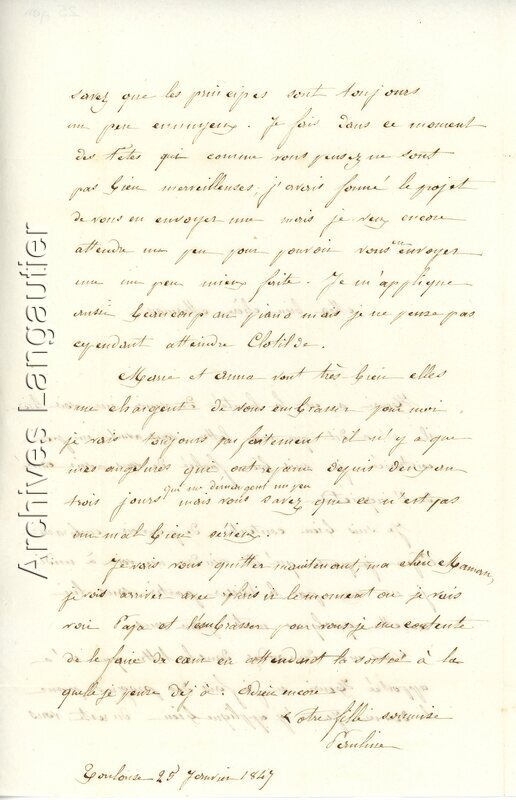 savez que les principes sont toujours
un peu ennuyeux. Je fais dans ce moment
des têtes qui comme vous pensez ne sont
pas bien merveilleuses; j'avais formé le projet
de vous en envoyer une mais je veux encore
attendre un peu pour pouvoir vous en envoyer
une un peu mieux faite. Je m'applique
aussi beaucoup au piano mais je ne pense pas
cependant atteindre Clotilde.
Marie et Anna vont très bien elles
me chargent de vous embrasser pour moi
je vais toujours parfaitement il n'y a que
mes angelures qui ont reparu depuis deux ou
trois jours qui me démangent un peu mais vous savez que ce n'est pas
un mal bien serieux.
Je vais vous quitter maintenant, ma chère Maman,
je vois arriver avec plaisir le moment ou je vais
voir Papa et l'embrasser pour vous je me contente
de le faire de cœur en attendant la sortie à la
quelle je pense déjà adieu encore
Votre fille soumise
Pauline
Toulouse 25 Janvier 1847
Archives Langautier